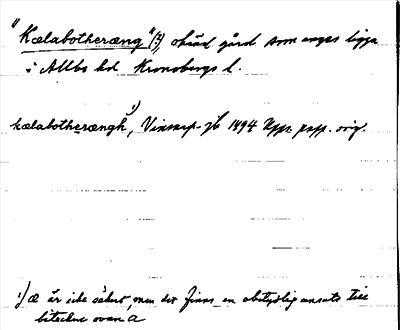 "Kælabotheræng"(?), okänd gård som anges ligga
i Allbo hd Kronobergs l.
kælabotherængh¹), Vinsarp 7/6 1494 Uppr. papp. orig.
¹) æ är icke säkert, men det finns en obetydlig ansats till
bitecken ovan a